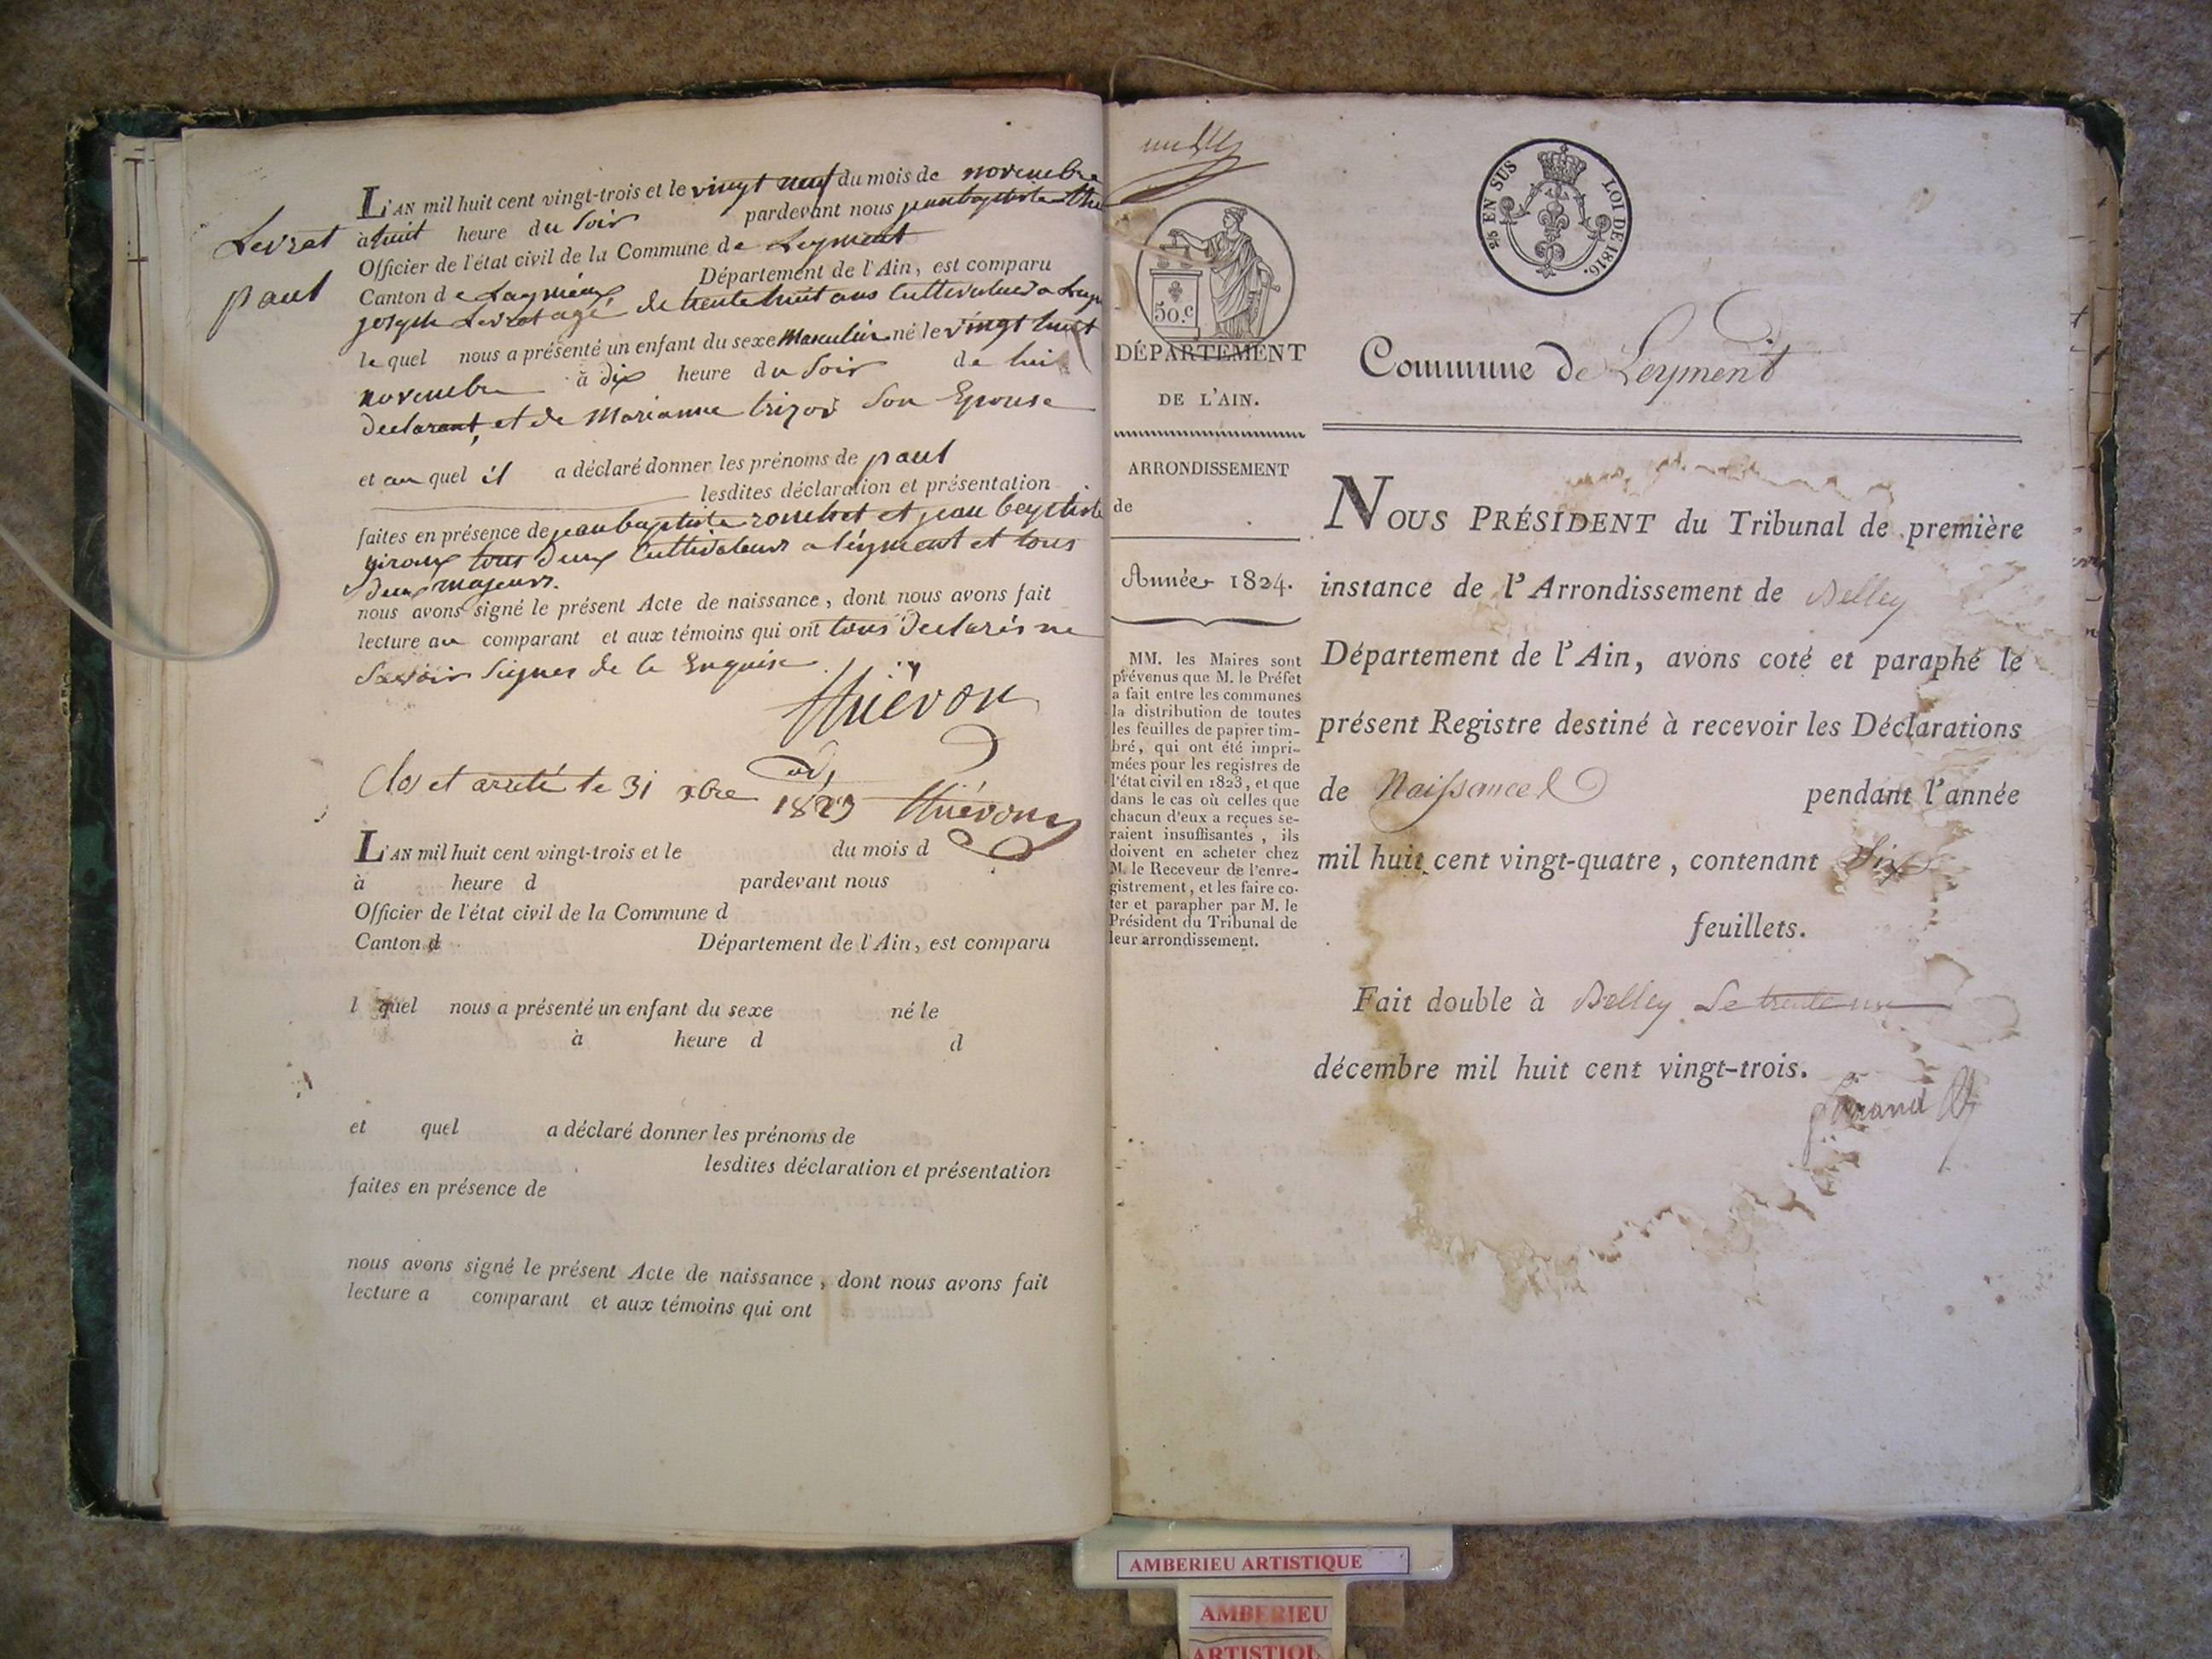 Levrat
paul
L'AN mil huit cent vingt-trois et le vingt neuf du mois de novembre
à huit heure du soir pardevant nous jean baptiste
Officier de l'état civil de la Commune de Leyment
Canton de Lagnieux, Département de l'Ain, est comparu
joseph Levrat agé de trente huit ans Cultivateur a
le quel nous a présenté un enfant du sexe Masculin né le vingt huit
novembre à dix heure du soir de lui
declarant, et de Marianne trizon son Epouse
et au quel il a déclaré donner les prénoms de paul
lesdites déclaration et présentation
faites en présence de jean baptiste et jean beptiste
giroux tous deux Cultivateurs a léyment et tous
deux majeurs.
nous avons signé le présent Acte de naissance, dont nous avons fait
lecture au comparant et aux témoins qui ont tous declarés ne
Savoir Signer de ce Enquise
Thiévon
Clos et arreté le 31 xbre 1823 Thiévon
adj
L'AN mil huit cent vingt-trois et le du mois d
à heure d pardevant nous
Officier de l'état civil de la Commune d
Canton d Département de l'Ain, est comparu
l quel nous a présenté un enfant du sexe né le
à heure d d
et quel a déclaré donner les prénoms de
lesdites déclaration et présentation
faites en présence de
nous avons signé le présent Acte de naissance, dont nous avons fait
lecture a comparant et aux témoins qui ont
50.c
DÉPARTEMENT
DE L'AIN.
ARRONDISSEMENT
de
Année 1824.
MM. les Maires sont
prévenus que M. le Préfet
a fait entre les communes
la distribution de toutes
les feuilles de papier tim-
bré, qui ont été impri-
mées pour les registres de
l'état civil en 1823, et que
dans le cas où celles que
chacun d'eux a reçues se-
raient insuffisantes, ils
doivent en acheter chez
M. le Receveur de l'enre-
gistrement, et les faire co-
ter et parapher par M. le
Président du Tribunal de
leur arrondissement.
EN SUS
LOI DE 1816.
Commune de Leyment
NOUS PRÉSIDENT du Tribunal de première
instance de l'Arrondissement de Belley
Département de l'Ain, avons coté et paraphé le
présent Registre destiné à recevoir les Déclarations
de Naissances pendant l'année
mil huit cent vingt-quatre, contenant Dix
feuillets.
Fait double à Belley Le trente un
décembre mil huit cent vingt-trois.
AMBERIEU ARTISTIQUE
AMBERIEU
ARTISTIQU